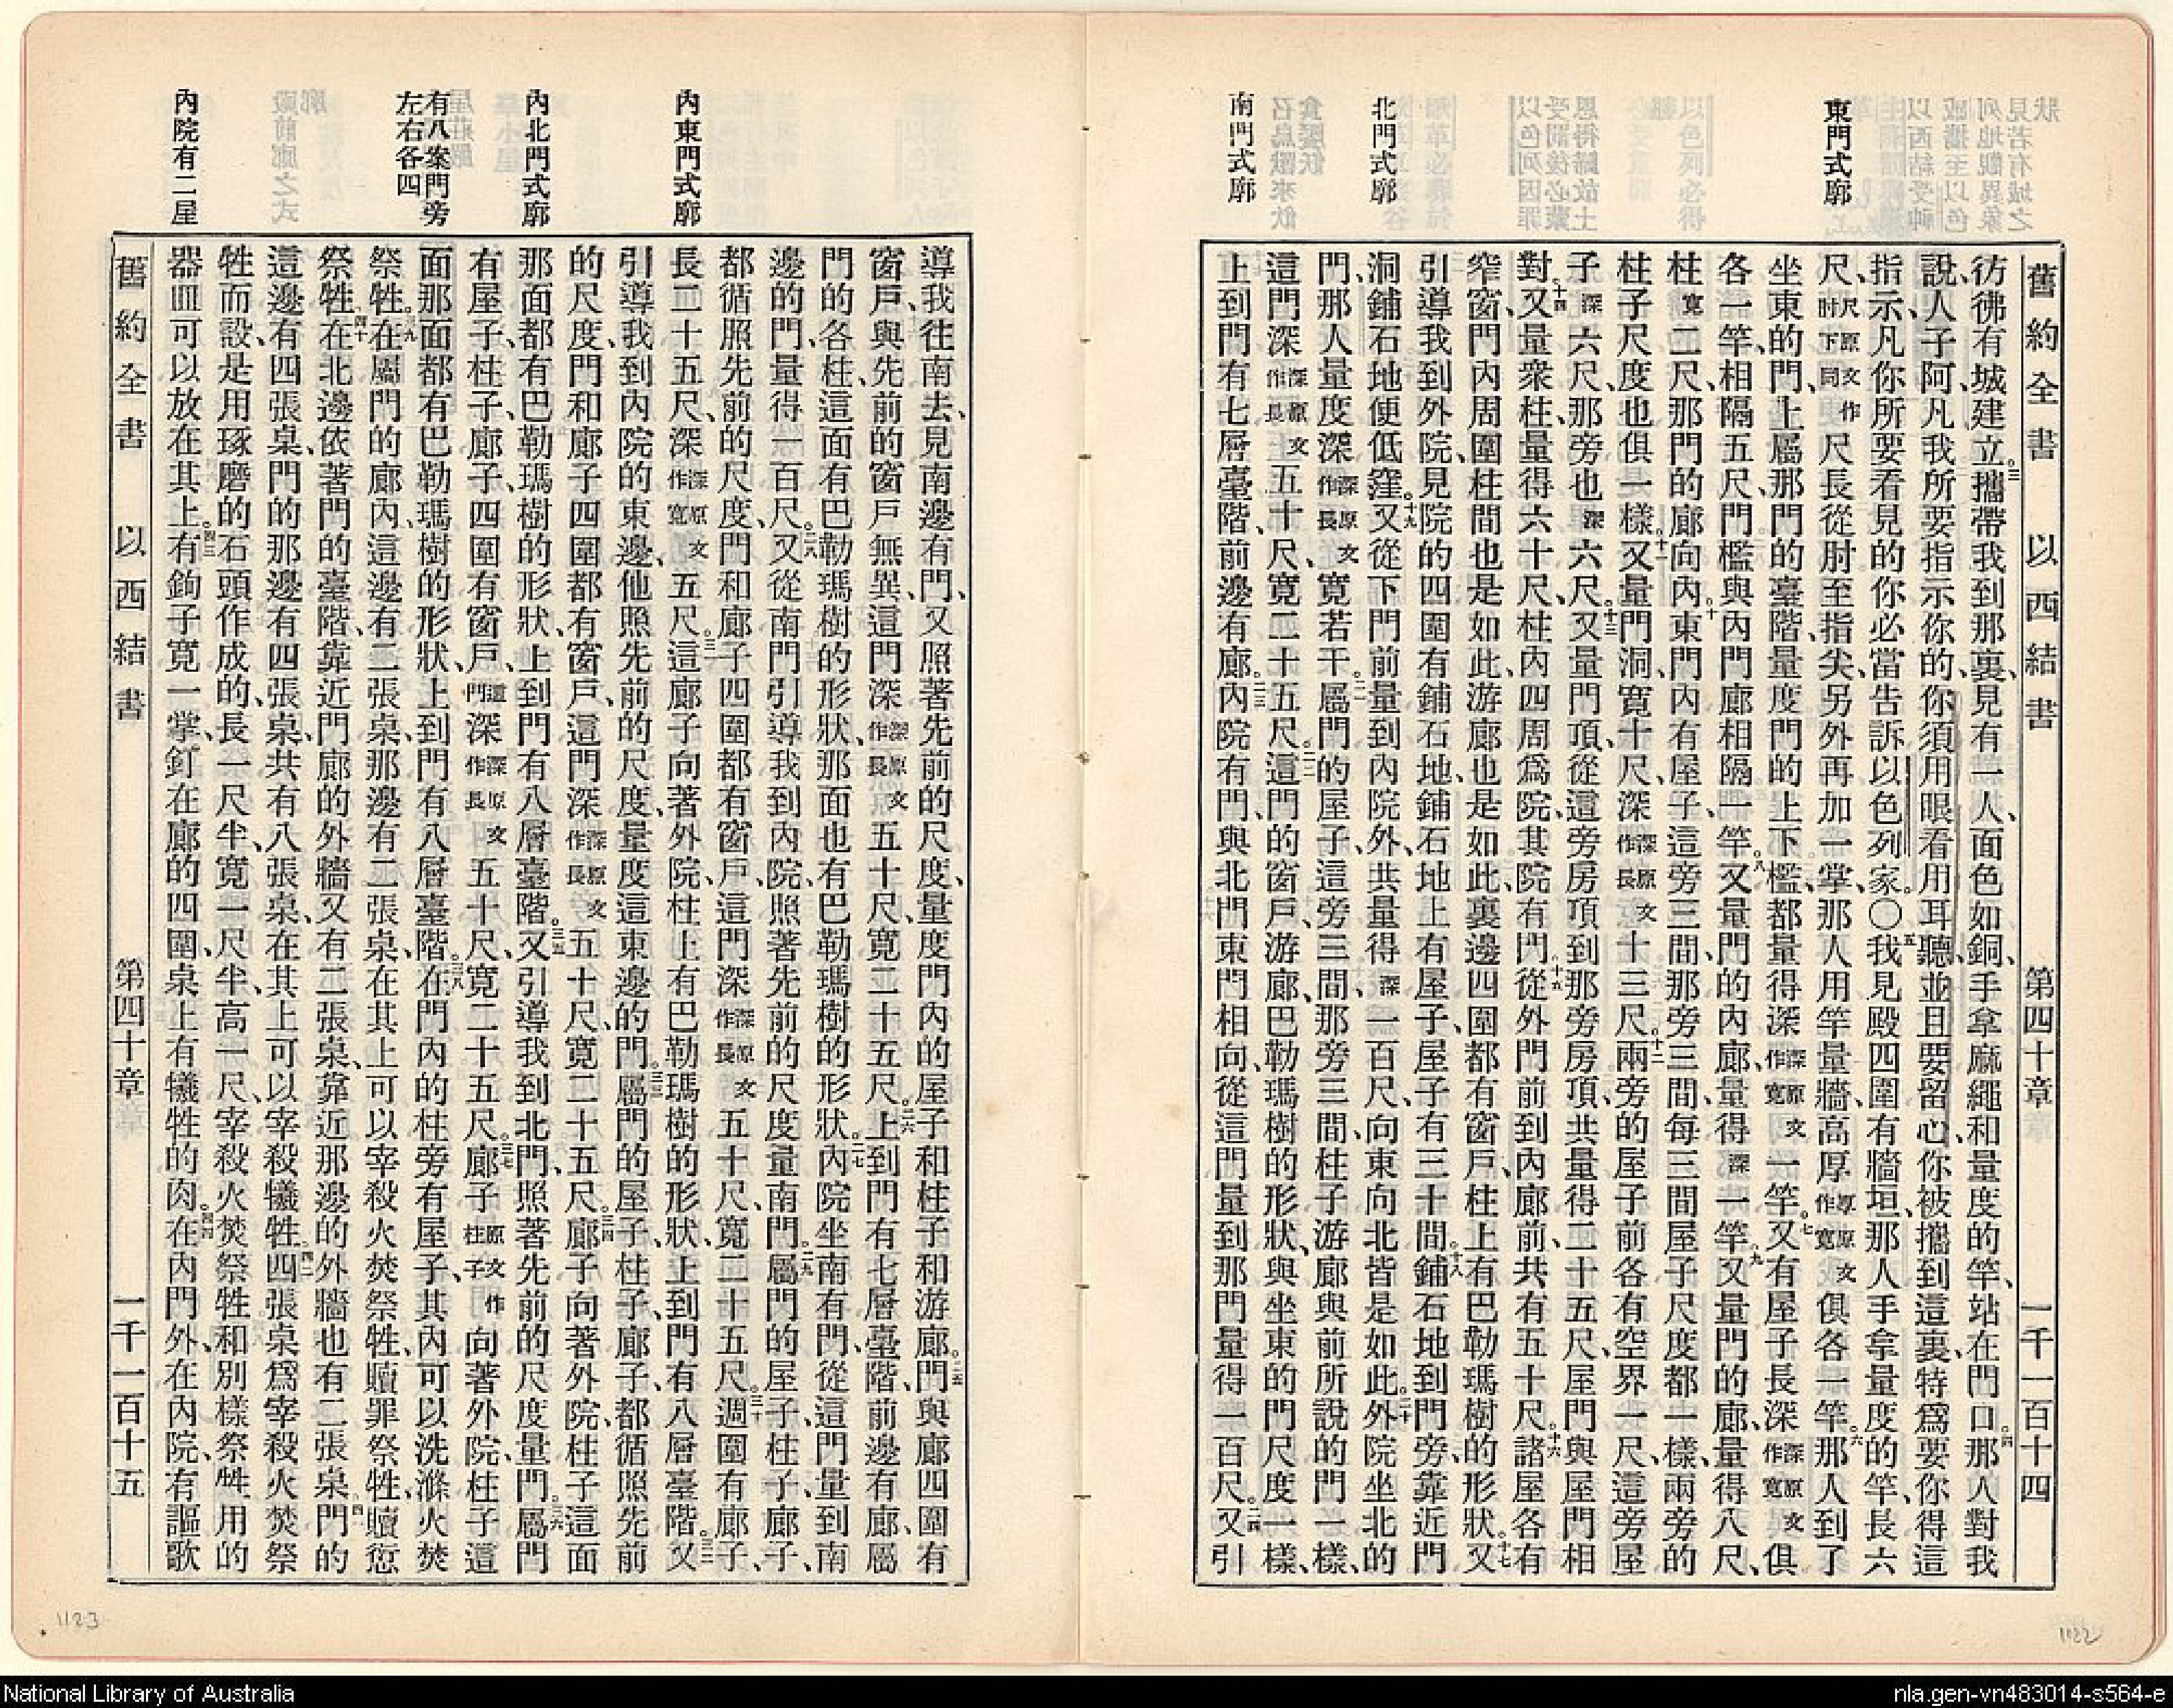 東門式廓
北門式廓
南門式廓
舊約全書 以西結書 第四十章 一千一百十四
彷彿有城建立。三攜帶我到那裏、見有一人、面色如銅、手拿麻繩和量度的竿、站在門口。四那人對我
說、人子阿、凡我所要指示你的、你須用眼看、用耳聽、並且要留心、你被攜到這裏、特爲要你得這
指示、凡你所要看見的、你必當告訴以色列家。〇五我見殿四圍有牆垣、那人手拿量度的竿、長六
尺、尺原文作肘下同尺長從肘至指尖、另外再加一掌、那人用竿量牆、高厚厚原文作寬俱各一竿。六那人到了
坐東的門、上屬那門的臺階、量度門的上下檻、都量得深深原文作寬一竿。七又有屋子長深深原文作寬俱
各一竿、相隔五尺、門檻與內門廊相隔一竿。八又量門的內廊、量得深一竿。九又量門的廊、量得八尺、
柱寬二尺、那門的廊向內。十東門內有屋子、這旁三間、那旁三間、每三間屋子尺度都一樣、兩旁的
柱子尺度也俱一樣。十一又量門洞、寬十尺、深深原文作長十三尺。十二兩旁的屋子前各有空界一尺、這旁屋
子深六尺、那旁也深六尺。十三又量門頂、從這旁房頂到那旁房頂、共量得二十五尺、屋門與屋門相
對。十四又量衆柱、量得六十尺、柱內四周爲院、其院有門。十五從外門前到內廊前、共有五十尺。十六諸屋各有
窄窗、門內周圍柱間也是如此、游廊也是如此、裏邊四圍都有窗戶、柱上有巴勒瑪樹的形狀。十七又
引導我到外院、見院的四圍有鋪石地、鋪石地上有屋子、屋子有三十間。十八鋪石地到門旁、靠近門
洞、鋪石地便低窪。十九又從下門前量到內院外、共量得深一百尺、向東向北皆是如此。二十外院坐北的
門、那人量度深深原文作長寬若干。二一屬門的屋子、這旁三間、那旁三間、柱子游廊與前所說的門一樣、
這門深深原文作長五十尺、寬二十五尺。二二這門的窗戶、游廊、巴勒瑪樹的形狀、與坐東的門尺度一樣、
上到門有七層臺階、前邊有廊。二三內院有門、與北門東門相向、從這門量到那門、量得一百尺。二四又引
內東門式廓
內北門式廓
有八案門旁
左右各四
內院有二屋
導我往南去、見南邊有門、又照著先前的尺度、量度門內的屋子和柱子和游廊。二五門與廊四圍有
窗戶、與先前的窗戶無異、這門深深原文作長五十尺、寬二十五尺。二六上到門有七層臺階、前邊有廊、屬
門的各柱、這面有巴勒瑪樹的形狀、那面也有巴勒瑪樹的形狀。二七內院坐南有門、從這門量到南
邊的門、量得一百尺。二八又從南門引導我到內院、照著先前的尺度量南門。二九屬門的屋子、柱子、廊子、
都循照先前的尺度、門和廊子四圍都有窗戶、這門深深原文作長五十尺、寬二十五尺。三十週圍有廊子、
長二十五尺、深深原文作寬五尺。三一這廊子向著外院、柱上有巴勒瑪樹的形狀、上到門有八層臺階。三二又
引導我到內院的東邊、他照先前的尺度、量度這東邊的門。三三屬門的屋子、柱子、廊子、都循照先前
的尺度、門和廊子四圍都有窗戶、這門深深原文作長五十尺、寬二十五尺。三四廊子向著外院、柱子這面
那面都有巴勒瑪樹的形狀、上到門有八層臺階。三五又引導我到北門、照著先前的尺度量門。三六屬門
有屋子、柱子、廊子、四圍有窗戶、這門深深原文作長五十尺、寬二十五尺。三七廊子原文作柱子向著外院、柱子這
面那面都有巴勒瑪樹的形狀、上到門有八層臺階。三八在門內的柱旁有屋子、其內可以洗滌火焚
祭牲。三九在屬門的廊內、這邊有二張桌、那邊有二張桌、在其上可以宰殺火焚祭牲、贖罪祭牲、贖愆
祭牲。四十在北邊依著門的臺階、靠近門廊的外牆、又有二張桌、靠近那邊的外牆也有二張桌。四一門的
這邊有四張桌、門的那邊有四張桌、共有八張桌、在其上可以宰殺犧牲。四二四張桌爲宰殺火焚祭
牲而設、是用琢磨的石頭作成的、長一尺半、寬一尺半、高一尺、宰殺火焚祭牲和別樣祭牲用的
器皿可以放在其上。四三有鉤子寬一掌、釘在廊的四圍、桌上有犧牲的肉。四四在內門外、在內院、有謳歌
舊約全書 以西結書 第四十章 一千一百十五
1123
1122
National Library of Australia
nla.gen-vn483014-s564-e